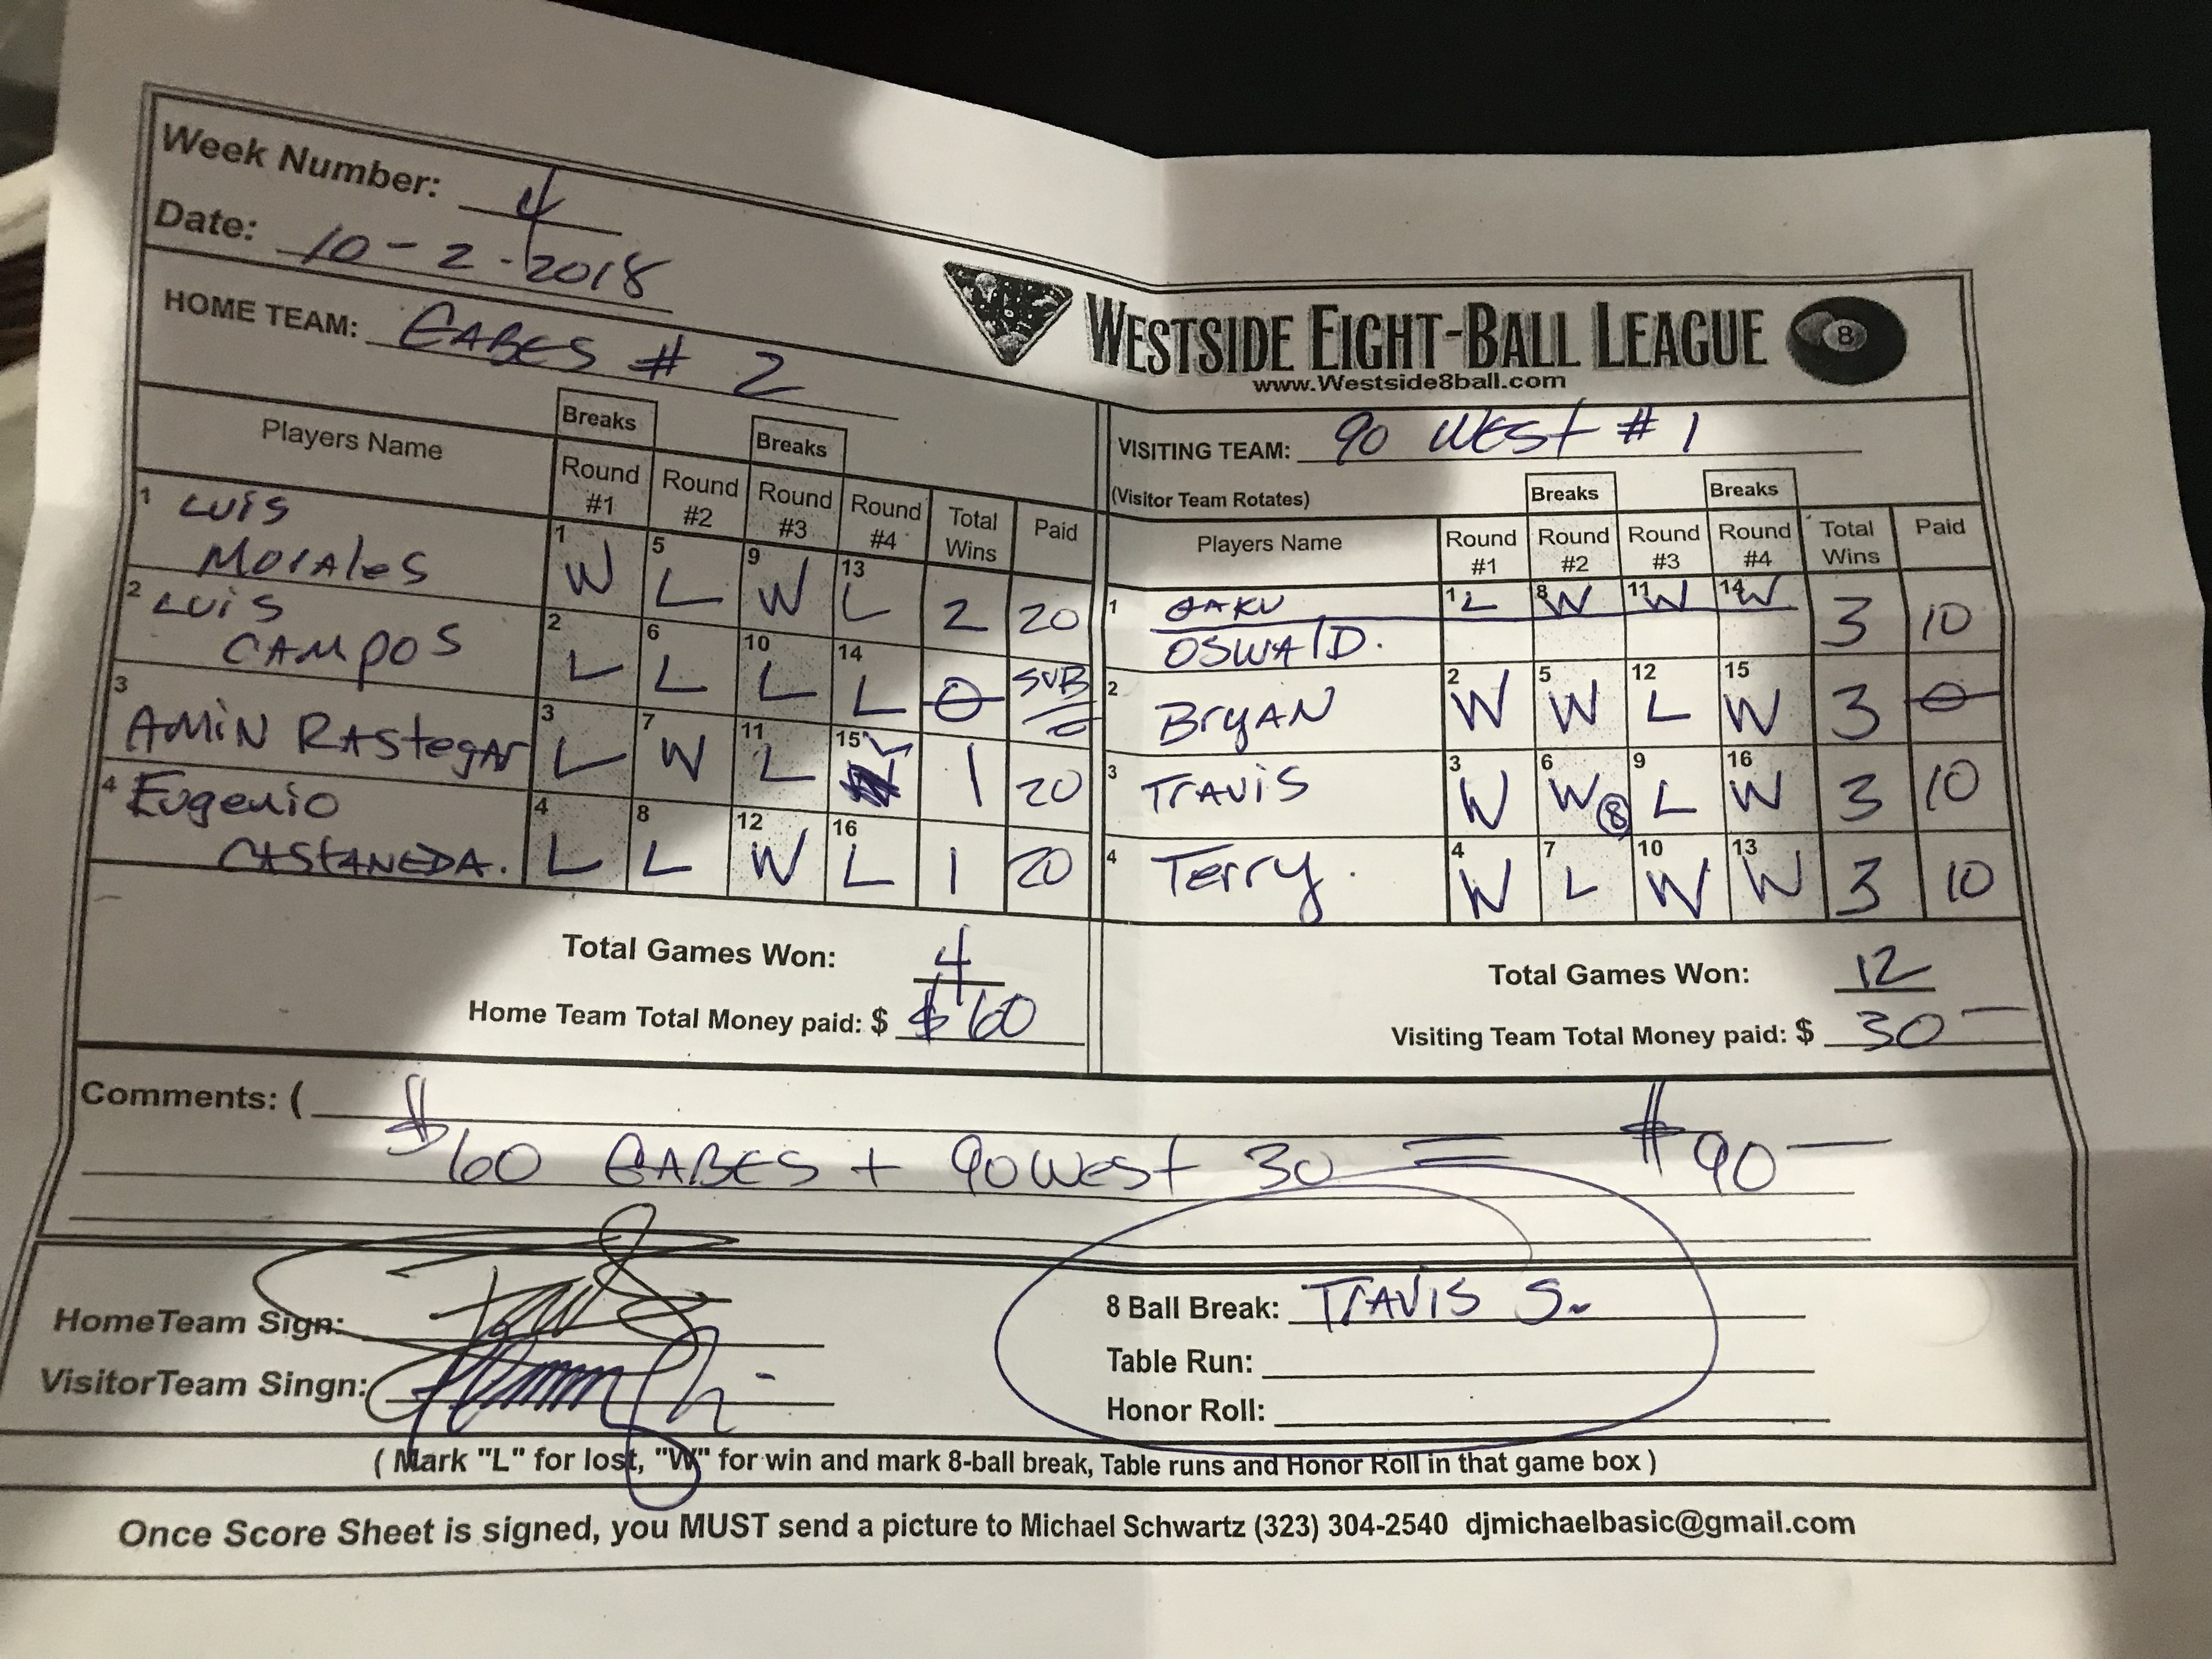 Week Number: 4
Date: 10-2-2018
HOME TEAM: EABES # 2
WESTSIDE EIGHT-BALL LEAGUE 8
www.Westside8ball.com
VISITING TEAM: 90 WEST #1
(Visitor Team Rotates)
Players Name Breaks Round #1 Round #2 Breaks Round #3 Round #4 Total Wins Paid
1 LUIS MORALES 1 W 5 L 9 W 13 L 2 20
2 LUIS CAMPOS 2 L 6 L 10 L 14 L 0 SUB
3 AMIN RASTEGAR 3 L 7 W 11 L 15 L 1 20
4 Eugenio CASTANEDA. 4 L 8 L 12 W 16 L 1 20
Total Games Won: 4
Home Team Total Money paid: $ $60
Players Name Round #1 Breaks Round #2 Round #3 Breaks Round #4 Total Wins Paid
1 OSWALD. 1 L 8 W 11 W 14 W 3 10
2 BryAN 2 W 5 W 12 L 15 W 3 0
3 TRAVIS 3 W 6 W 8 9 L 16 W 3 10
4 Terry. 4 W 7 L 10 W 13 W 3 10
Total Games Won: 12
Visiting Team Total Money paid: $ 30
Comments: (
$60 EABES + 90 WEST 30 = $90
HomeTeam Sign:
VisitorTeam Singn:
8 Ball Break: TRAVIS S.
Table Run:
Honor Roll:
( Mark "L" for lost, "W" for win and mark 8-ball break, Table runs and Honor Roll in that game box )
Once Score Sheet is signed, you MUST send a picture to Michael Schwartz (323) 304-2540 djmichaelbasic@gmail.com